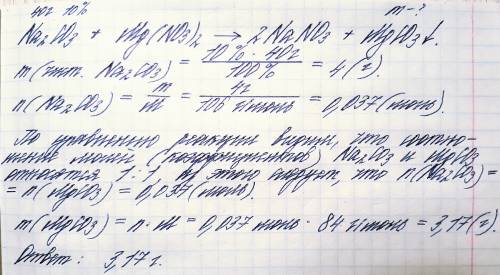 40г 10% m-?
Na₂CO₃ + Mg(NO₃)₂ → 2NaNO₃ + MgCO₃↓.
m(чист. Na₂CO₃) = 10% · 40г / 100% = 4(г).
n(Na₂CO₃) = m/M = 4г / 106 г/моль = 0,037(моль).
По уравнению реакции видим, что соотно-
шение молей (коэффициентов) Na₂CO₃ и MgCO₃
относятся 1:1. Из этого следует, что n(Na₂CO₃) =
= n(MgCO₃) = 0,037(моль).
m(MgCO₃) = n · M = 0,037 моль · 84 г/моль = 3,17(г).
Ответ: 3,17 г.